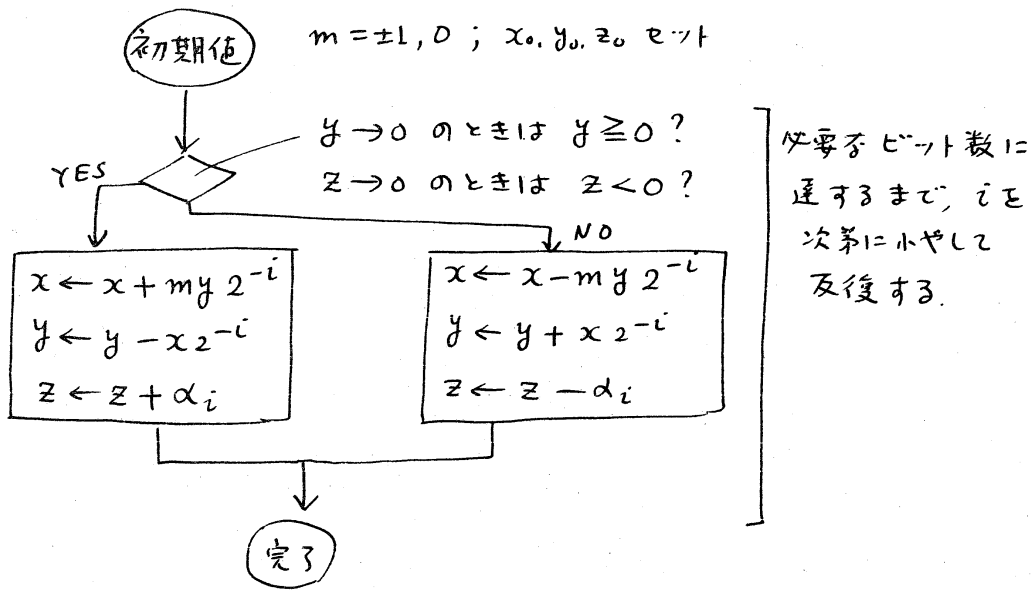 初期値
m = ±1, 0 ; x₀, y₀, z₀ セット
y → 0 のときは y ≧ 0 ?
z → 0 のときは z < 0 ?
YES
NO
x ← x + m y 2⁻ⁱ
y ← y − x 2⁻ⁱ
z ← z + αᵢ
x ← x − m y 2⁻ⁱ
y ← y + x 2⁻ⁱ
z ← z − αᵢ
必要なビット数に
達するまで, i を
次第に小やして
反復する.
完了